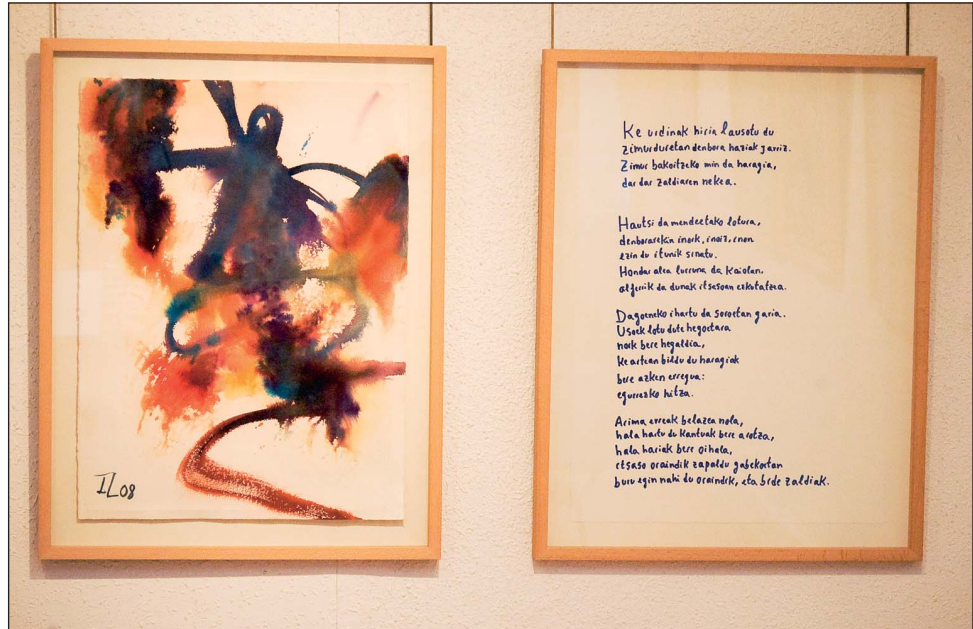 IL08
Ke urdinak hiria lausotu du
zimurduretan denbora haziak jarriz.
Zimur bakoitzeko min da haragia,
dar dar zaldiaren nekea.
Hautsi da mendeetako lotura,
denborarekin inork, inoiz, inon
ezin du itunik sinatu.
Hondar alea lurruna da kaiolan.
alferrik da dunak itsasoan ezkutatzea.
Dagoeneko ihartu da soroetan garia.
Usoek lotu dute hegoetara
nork bere hegaldia,
ke artean bildu du haragiak
bere azken erregua:
egurrezko hitza.
Arima erreak belazea nola,
hala hartu du kantuak bere arotza,
hala hariak bere oihala,
itsaso oraindik zapaldu gabekoetan
buru egin nahi du oraindik, eta zaldiak.